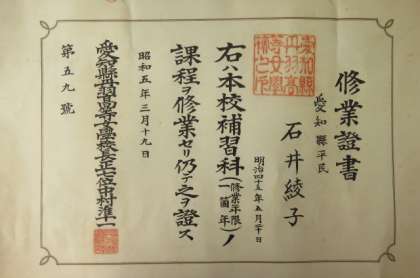 修業證書
愛知縣平民
石井綾子
明治四十五年五月二十日
右ハ本校補習科(修業年限一箇年)ノ
課程ヲ修業セリ仍テ之ヲ證ス
昭和五年三月十九日
愛知縣丹羽高等女學校長正七位中村準一
第五九號